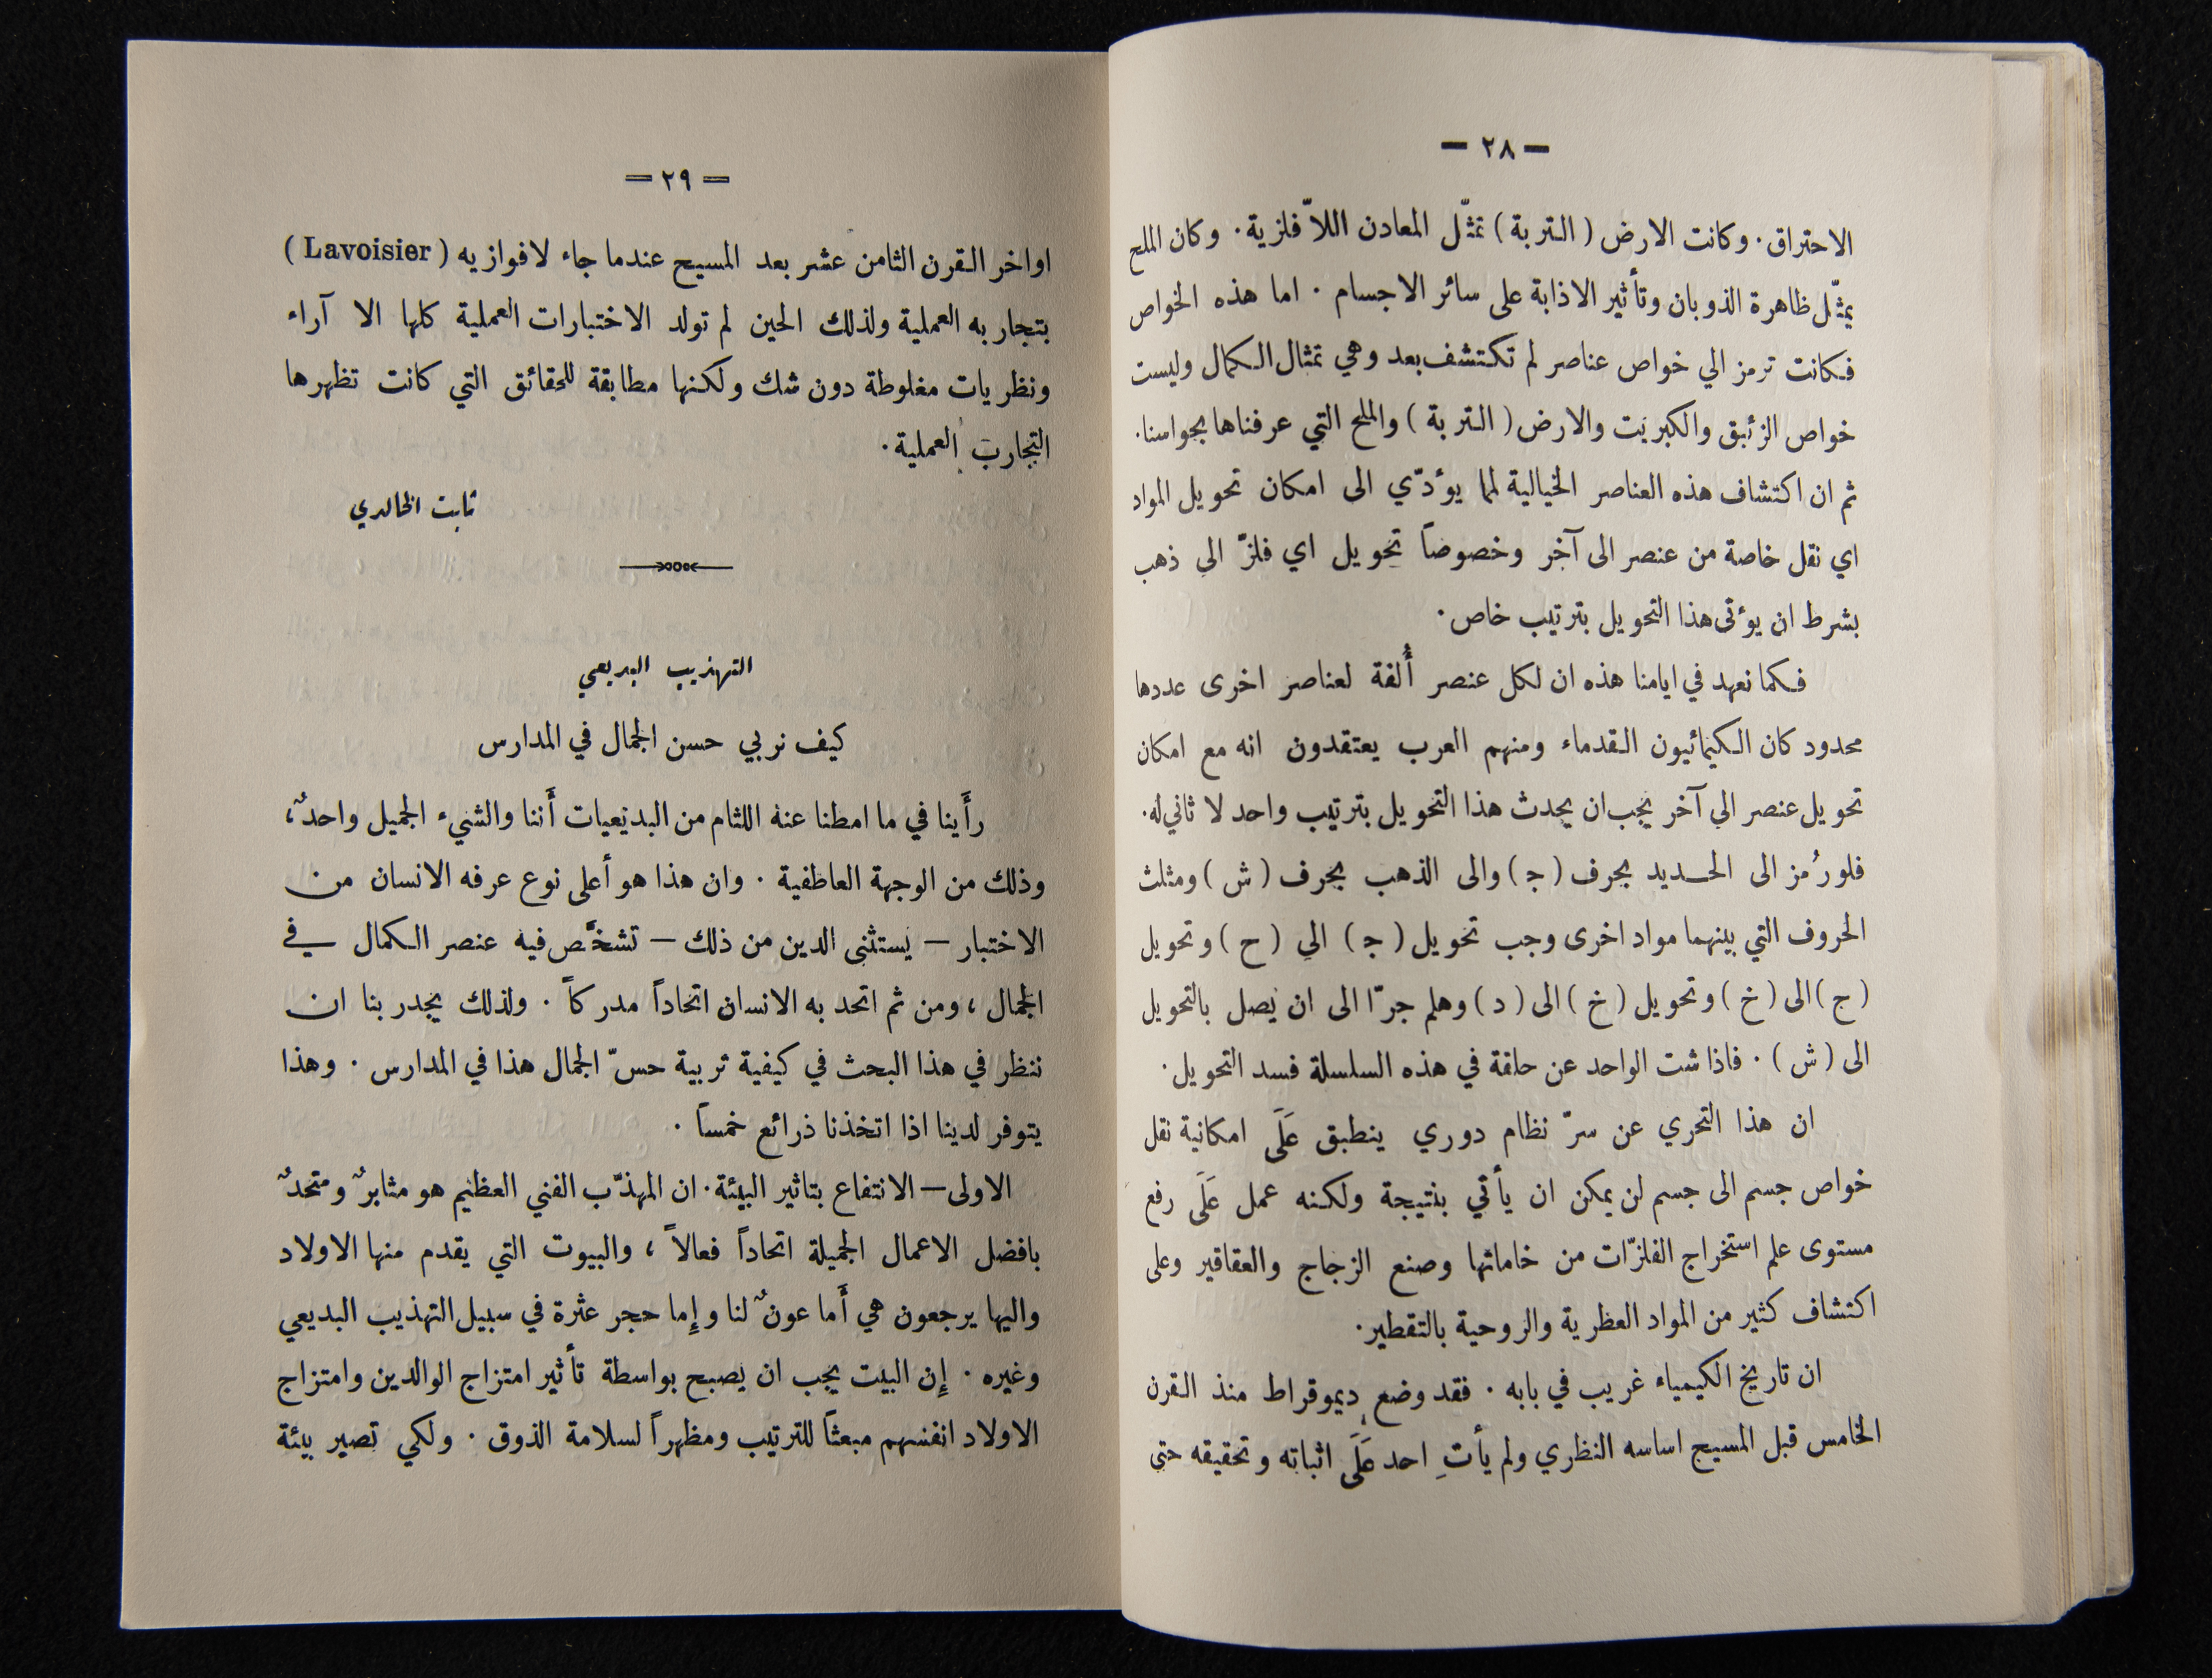 — ٢٨ —
الاحتراق. وكانت الارض ( التربة ) تمثّل المعادن اللاّ فلزية. وكان الملح
يمثّل ظاهرة الذوبان وتأثير الاذابة على سائر الاجسام . اما هذه الخواص
فكانت ترمز الي خواص عناصر لم تكتشف بعد وهي تمثال الكمال وليست
خواص الزئبق والكبريت والارض ( التربة ) والملح التي عرفناها بحواسنا.
ثم ان اكتشاف هذه العناصر الخيالية لمما يؤدّي الى امكان تحويل المواد
اي نقل خاصة من عنصر الى آخر وخصوصاً تحويل اي فلزّ الي ذهب
بشرط ان يؤتى هذا التحويل بترتيب خاص.
فكما نعهد في ايامنا هذه ان لكل عنصر أُلفة لعناصر اخرى عددها
محدود كان الكيمائيون القدماء ومنهم العرب يعتقدون انه مع امكان
تحويل عنصر الي آخر يجب ان يحدث هذا التحويل بترتيب واحد لا ثاني له.
فلو رُمز الى الحديد بحرف ( ج ) والى الذهب بحرف ( ش ) ومثلث
الحروف التي بينهما مواد اخرى وجب تحويل ( ج ) الي ( ح ) وتحويل
( ح ) الى ( خ ) وتحويل ( خ ) الى ( د ) وهلم جرّا الى ان يصل بالتحويل
الى ( ش ) . فاذا شت الواحد عن حلقة في هذه السلسلة فسد التحويل.
ان هذا التحري عن سرّ نظام دوري ينطبق عَلَى امكانية نقل
خواص جسم الى جسم لن يمكن ان يأتي بنتيجة ولكنه عمل عَلَى رفع
مستوى علم استخراج الفلزّات من خاماتها وصنع الزجاج والعقاقير وعلى
اكتشاف كثير من المواد العطرية والروحية بالتقطير.
ان تاريخ الكيمياء غريب في بابه . فقد وضع ديموقراط منذ القرن
الخامس قبل المسيح اساسه النظري ولم يأتِ احد عَلَى اثباته وتحقيقه حتى
= ٢٩ =
اواخر القرن الثامن عشر بعد المسيح عندما جاء لافوازيه ( Lavoisier )
بتجاربه العملية ولذلك الحين لم تولد الاختبارات العملية كلها الا آراء
ونظريات مغلوطة دون شك ولكنها مطابقة للحقائق التي كانت تظهرها
التجارب العملية.
ثابت الخالدي
التهذيب البديعي
كيف نربي حسن الجمال في المدارس
رأَينا في ما امطنا عنه اللثام من البديعيات أَننا والشيء الجميل واحدٌ،
وذلك من الوجهة العاطفية . وان هذا هو أعلى نوع عرفه الانسان من
الاختبار — يستثنى الدين من ذلك — تشخَّص فيه عنصر الكمال في
الجمال ، ومن ثم اتحد به الانسان اتحاداً مدركاً . ولذلك يجدر بنا ان
ننظر في هذا البحث في كيفية تربية حسّ الجمال هذا في المدارس . وهذا
يتوفر لدينا اذا اتخذنا ذرائع خمساً .
الاولى — الانتفاع بتاثير البيئة. ان المهذّب الفني العظيم هو مثابرٌ ومتحدٌ
بافضل الاعمال الجميلة اتحاداً فعالاً ، والبيوت التي يقدم منها الاولاد
واليها يرجعون هي أَما عونٌ لنا وإما حجر عثرة في سبيل التهذيب البديعي
وغيره . إِن البيت يجب ان يصبح بواسطة تأثير امتزاج الوالدين وامتزاج
الاولاد انفسهم مبعثاً للترتيب ومظهراً لسلامة الذوق . ولكي تصير بيئة